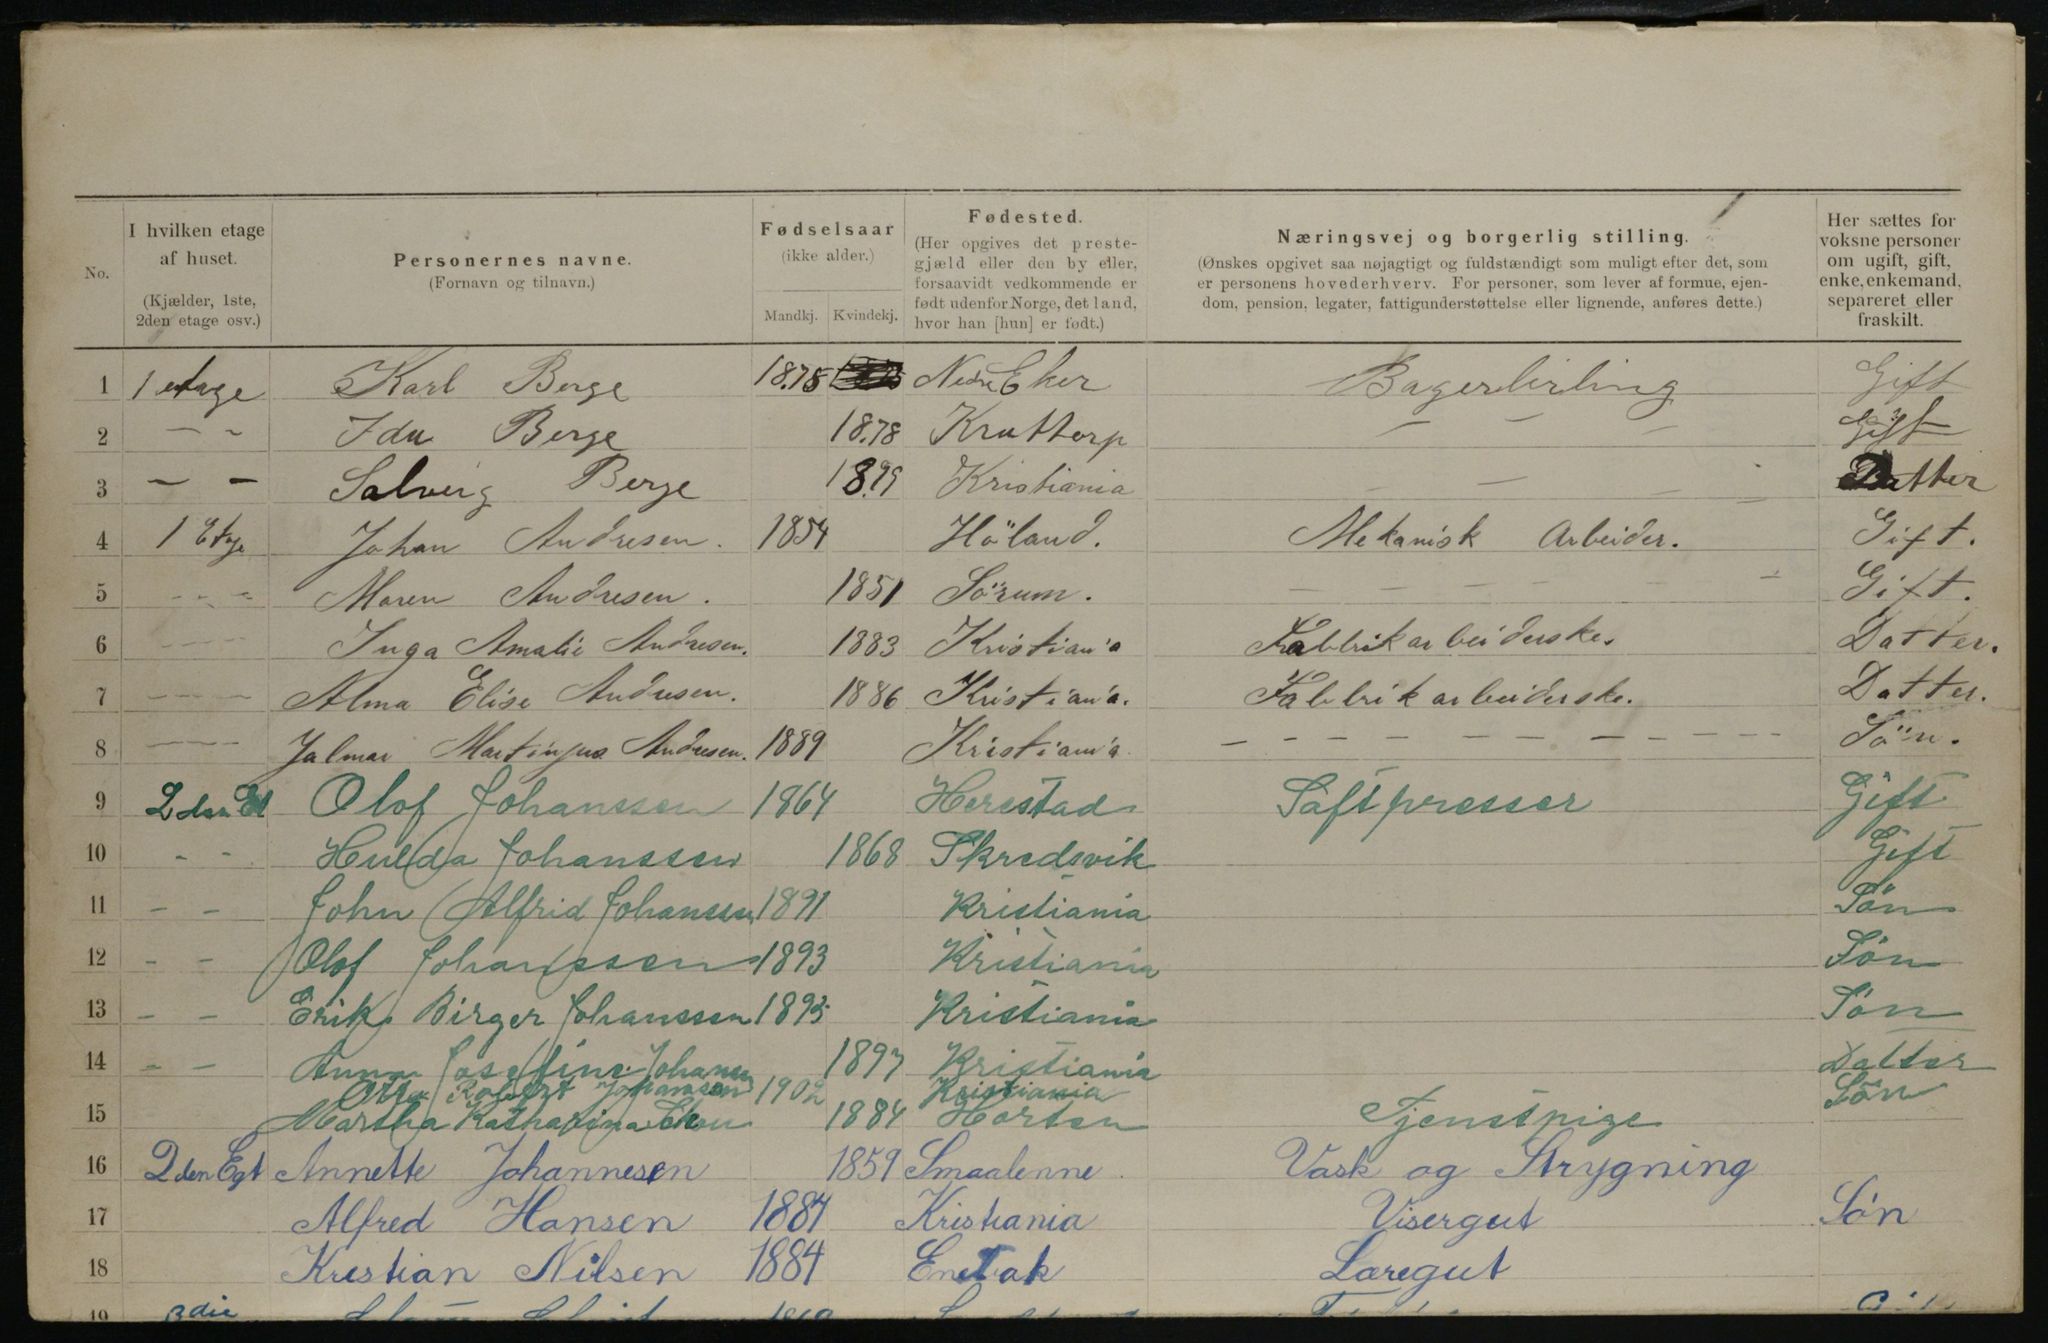 No.
I hvilken etage af huset. (Kjælder, 1ste, 2den etage osv.)
Personernes navne. (Fornavn og tilnavn.)
Fødselsaar (ikke alder.)
Mandkj. Kvindekj.
Fødested. (Her opgives det prestegjæld eller den by eller, forsaavidt vedkommende er født udenfor Norge, det land, hvor han [hun] er født.)
Næringsvej og borgerlig stilling. (Ønskes opgivet saa nøjagtigt og fuldstændigt som muligt efter det, som er personens hovederhverv. For personer, som lever af formue, ejendom, pension, legater, fattigunderstøttelse eller lignende, anføres dette.)
Her sættes for voksne personer om ugift, gift, enke, enkemand, separeret eller fraskilt.
1 1 etage Karl Berge 1875 Nedre Eker Gift
2 – – Ida Berge 1878 – – – Gift
3 – – Solveig Berge 1899 Kristiania – – – Datter
4 1 Etage Johan Andresen. 1854 Höland. Mekanisk Arbeider. Gift.
5 – – – Maren Andresen. 1851 Sörum. – – – – – – Gift.
6 – – – – Inga Amalie Andresen. 1883 Kristiania Fabbrikarbeiderske. Datter.
7 – – – – Alma Elise Andresen. 1886 Kristiania. Fabbrikarbeiderske. Datter.
8 – – – – Jalmar Martinjus Andresen. 1889 Kristiania – – – – – – – – – Sön.
9 2den Et Olof Johanssen 1864 Herestad Saftpresser Gift
10 – – Hulda Johanssen 1868 Skredsvik Gift
11 – – John Alfrid Johanssen 1891 Kristiania Søn
12 – – Olof Johanssen 1893 Kristiania Søn
13 – – Erik Birger Johanssen 1895 Kristiania Søn
14 – – Anna Josefine Johanss 1897 Kristiania Datter
Otto Robert Johansen 1902 Kristiania Søn
15 Martha Katharina 1884 Horten Tjenstpige
16 2den Egt Annette Johannesen 1859 Smaalenne Vask og Strygning
17 Alfred Hansen 1887 Kristiania Visergut Søn
18 Krestian Nilsen 1884 Enebak Læregut
19 3die